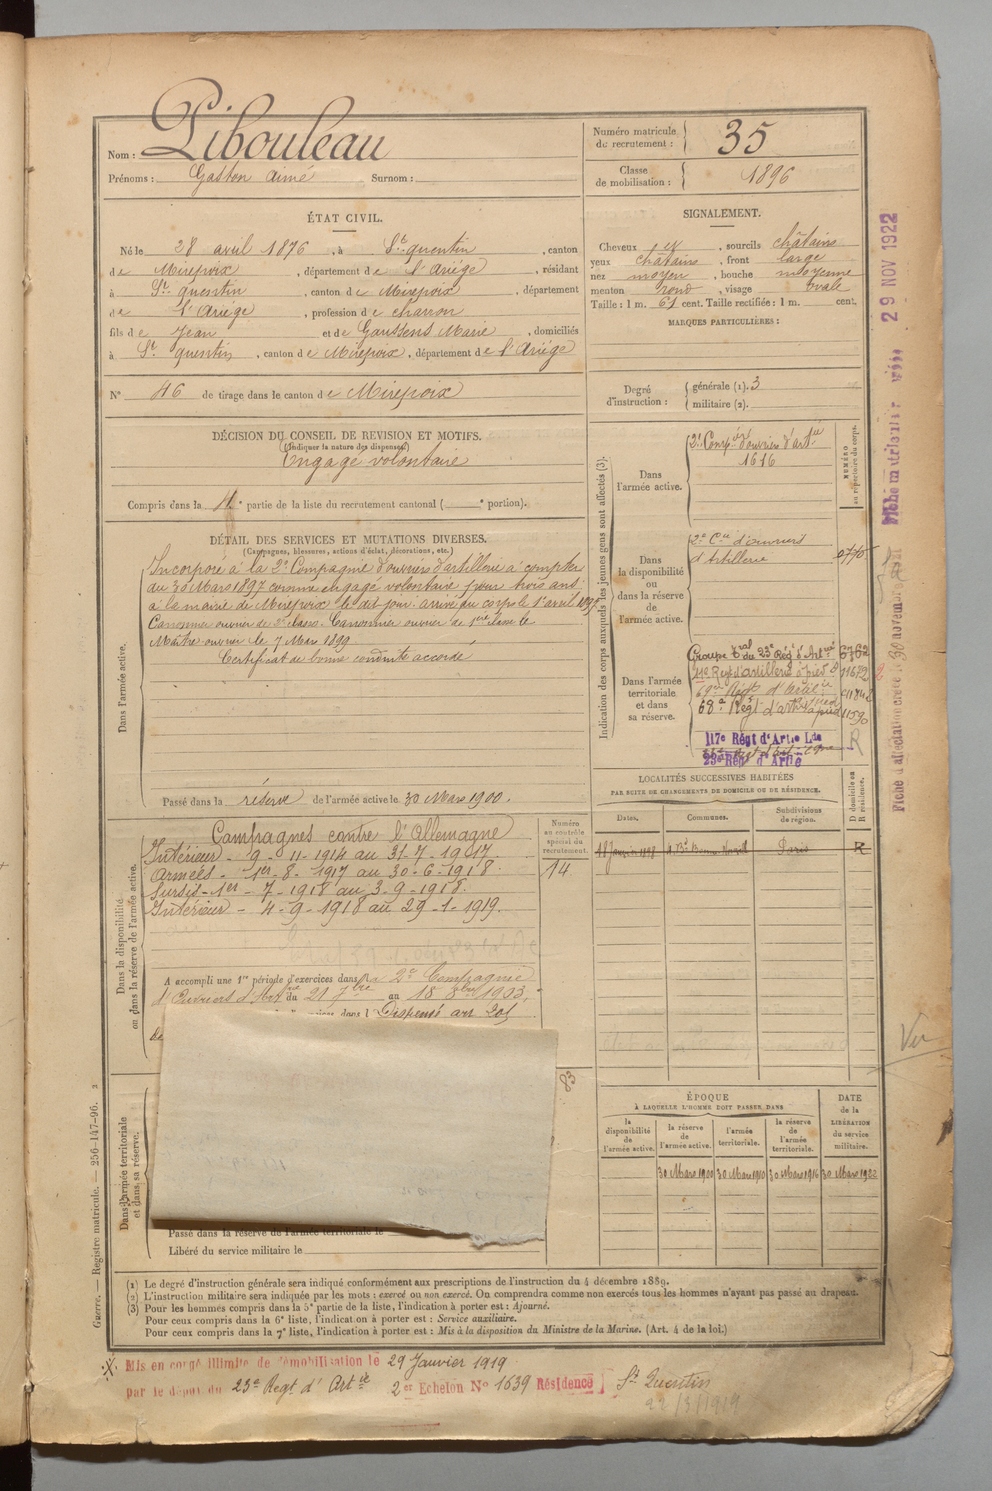 Nom : Pibouleau
Prénoms : Gaston Aimé Surnom :
Numéro matricule du recrutement : 35
Classe de mobilisation : 1896
ÉTAT CIVIL.
Né le 28 avril 1876, à St quentin, canton
de Mirepoix, département de l'Ariège, résidant
à St quentin, canton de Mirepoix, département
de l'Ariège, profession de charron
fils de Jean et de Gaussens Marie, domiciliés
à St quentin, canton de Mirepoix, département de l'Ariège
N° 46 de tirage dans le canton de Mirepoix
SIGNALEMENT.
Cheveux et, sourcils châtains
yeux châtains, front large
nez moyen, bouche moyenne
menton rond, visage ovale
Taille : 1 m. 61 cent. Taille rectifiée : 1 m. cent.
MARQUES PARTICULIÈRES :
Degré d'instruction : générale (1). 3
militaire (2).
DÉCISION DU CONSEIL DE REVISION ET MOTIFS.
(Indiquer la nature des dispenses)
Engagé volontaire
Compris dans la 4e partie de la liste du recrutement cantonal ( e portion).
DÉTAIL DES SERVICES ET MUTATIONS DIVERSES.
(Campagnes, blessures, actions d'éclat, décorations, etc.)
Dans l'armée active.
Incorporé à la 2e Compagnie d'ouvriers d'artillerie à compter
du 30 Mars 1897 comme engagé volontaire pour trois ans
à la mairie de Mirepoix le dit jour. arrivé au corps le 1er avril 1897.
Canonnier ouvrier de 2e classe. Canonnier ouvrier de 1ère classe le
Maître ouvrier le 7 Mars 1899
Certificat de bonne conduite accordé
Passé dans la réserve de l'armée active le 30 Mars 1900.
Indication des corps auxquels les jeunes gens sont affectés (3).
NUMÉRO au répertoire du corps.
Dans l'armée active.
2e Compie d'ouvriers d'artie
1616
Dans la disponibilité ou dans la réserve de l'armée active.
2e Cie d'ouvriers
d'Artillerie 0776
Dans l'armée territoriale et dans sa réserve.
Groupe tral du 23e Régt d'Artie 6762
Régt d'artillerie à pied 11672
69e Régt d'Artie
68e Régt d'artie à pied 11590
117e Régt d'Artie Lde R
23e Régt d'Artie
LOCALITÉS SUCCESSIVES HABITÉES
PAR SUITE DE CHANGEMENTS DE DOMICILE OU DE RÉSIDENCE.
Dates. Communes. Subdivisions de région. D domicile ou R résidence.
18 Janvier 1898 Paris R
Dans la disponibilité ou dans la réserve de l'armée active.
Numéro au contrôle spécial du recrutement.
14
Campagnes contre l'Allemagne
Intérieur - 9-11-1914 au 31-7-1917
Armées - 1er-8-1917 au 30-6-1918.
Sursis - 1er-7-1918 au 3-9-1918.
Intérieur - 4-9-1918 au 29-1-1919.
A accompli une 1re période d'exercices dans la 2e Compagnie
d'Ouvriers d'Artie du 21 7bre au 18 8bre 1903.
Dispensé art 201
Dans l'armée territoriale et dans sa réserve.
Passé dans la réserve de l'armée territoriale le
Libéré du service militaire le
ÉPOQUE
À LAQUELLE L'HOMME DOIT PASSER DANS
la disponibilité de l'armée active.
la réserve de l'armée active.
l'armée territoriale.
la réserve de l'armée territoriale.
DATE de la LIBÉRATION du service militaire.
30 Mars 1900 30 Mars 1910 30 Mars 1916 30 Mars 1922
(1) Le degré d'instruction générale sera indiqué conformément aux prescriptions de l'instruction du 4 décembre 1889.
(2) L'instruction militaire sera indiquée par les mots : exercé ou non exercé. On comprendra comme non exercés tous les hommes n'ayant pas passé au drapeau.
(3) Pour les hommes compris dans la 5e partie de la liste, l'indication à porter est : Ajourné.
Pour ceux compris dans la 6e liste, l'indication à porter est : Service auxiliaire.
Pour ceux compris dans la 7e liste, l'indication à porter est : Mis à la disposition du Ministre de la Marine. (Art. 4 de la loi.)
Mis en congé illimité de démobilisation le 29 Janvier 1919
par le dépôt du 23e Régt d'Artie 2er Echelon N° 1639 Résidence St Quentin
22/3/1919
Guerre. — Registre matricule. — 256-147-96.
29 NOV 1922
Vu